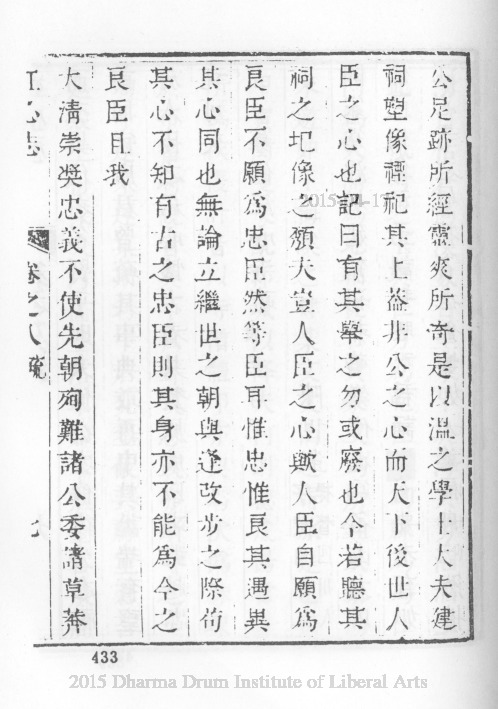 公足跡所經靈爽所寄是以溫之學士大夫建
祠塑像禋祀其上蓋非公之心而天下後世人
臣之心也記曰有其舉之勿或廢也今若聽其
祠之圮像之頹夫豈人臣之心歟人臣自願為
良臣不願為忠臣然等臣耳惟忠惟良其遇異
其心同也無論立繼世之朝與逢改步之際苟
其心不知有古之忠臣則其身亦不能為今之
良臣且我
大清崇獎忠義不使先朝殉難諸公委諸草莽
江心志
卷之八 疏
七
433
2015 Dharma Drum Institute of Liberal Arts